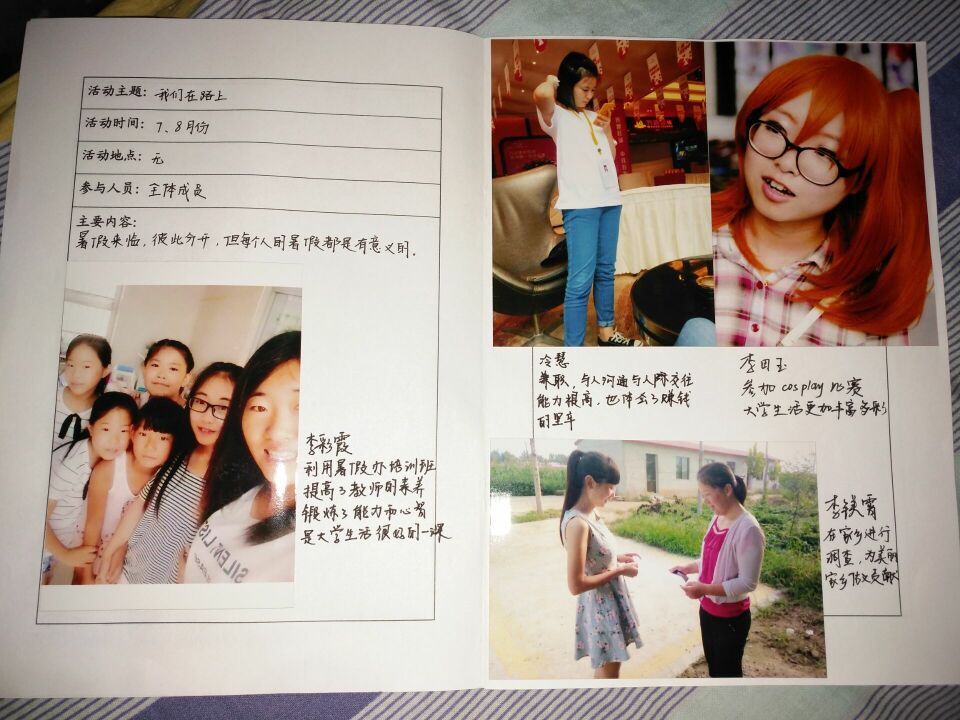 活动主题：我们在路上
活动时间：7、8月份
活动地点：无
参与人员：全体成员
主要内容：
暑假来临，彼此分开，但每个人的暑假都是有意义的．
李彩霞
利用暑假办培训班
提高了教师的素养
锻炼了能力和心智
是大学生活很好的一课
SILEN
冷慧
兼职，与人沟通与人际交往
能力提高，也体会了赚钱
的艰辛
李田玉
参加cosplay比赛
大学生活更加丰富多彩
李镁霄
在家乡进行
调查，为美丽
家乡做贡献